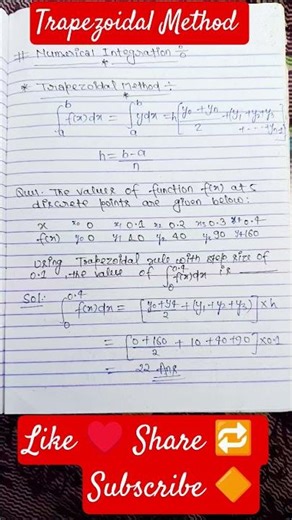 Trapezoidal Method
# Numerical Integration ÷
* Trapezoidal Method ÷
∫_a^b f(x)dx = ∫_a^b y dx = h[(y0 + yn)/2 + (y1 + y2 + y3
+ ... + yn-1)
h = (b-a)/n
Ques. The values of function f(x) at 5
discrete points are given below:
x x0 0 x1 0.1 x2 0.2 x3 0.3 x4 0.4
f(x) y0 0 y1 10 y2 40 y3 90 y4 160
using Trapezoidal rule with step size of
0.1, the value of ∫_0^0.4 f(x)dx is
Sol:
∫_0^0.4 f(x)dx = [(y0 + y4)/2 + (y1 + y2 + y3)] × h
= [(0 + 160)/2 + 10 + 40 + 90] × 0.1
= 22 Ans
Like ❤️ Share 🔁
Subscribe 🔶